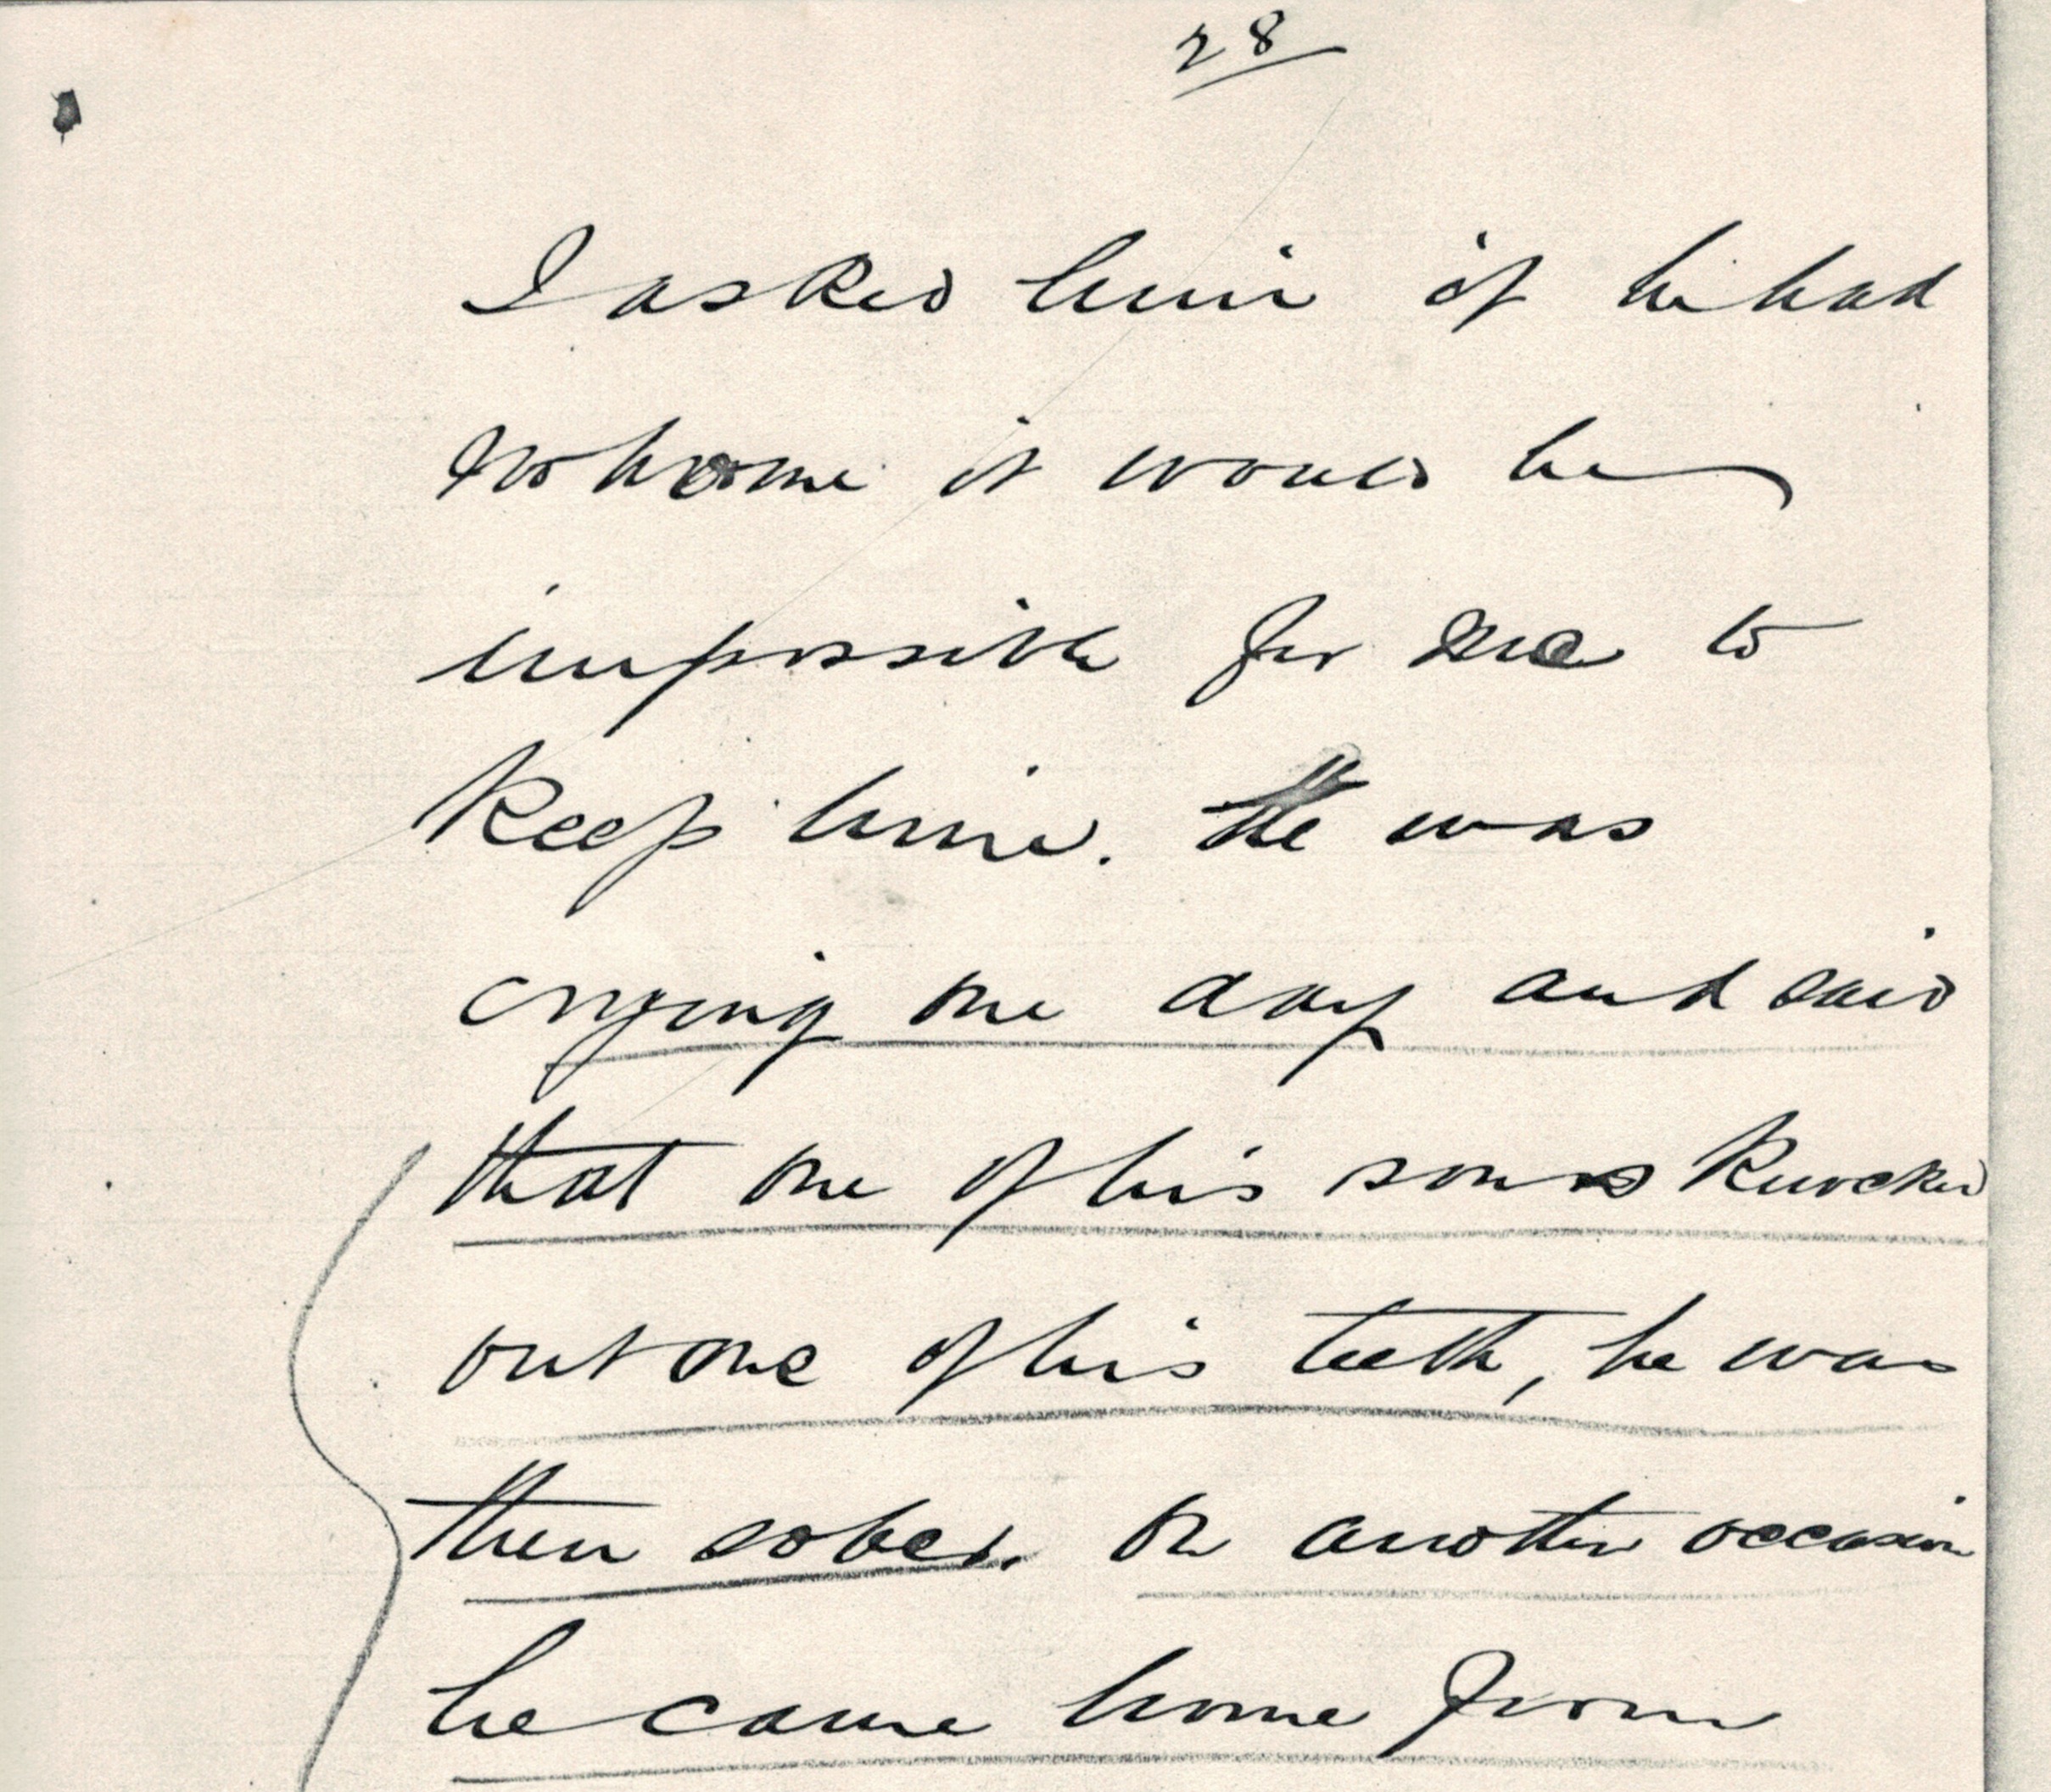 28
I asked him if he had
no home it would be
impossible for me to
keep him. He was
crying one day and said
that one of his sons knocked
out one of his teeth, he was
then sober. On another occasion
he came home from